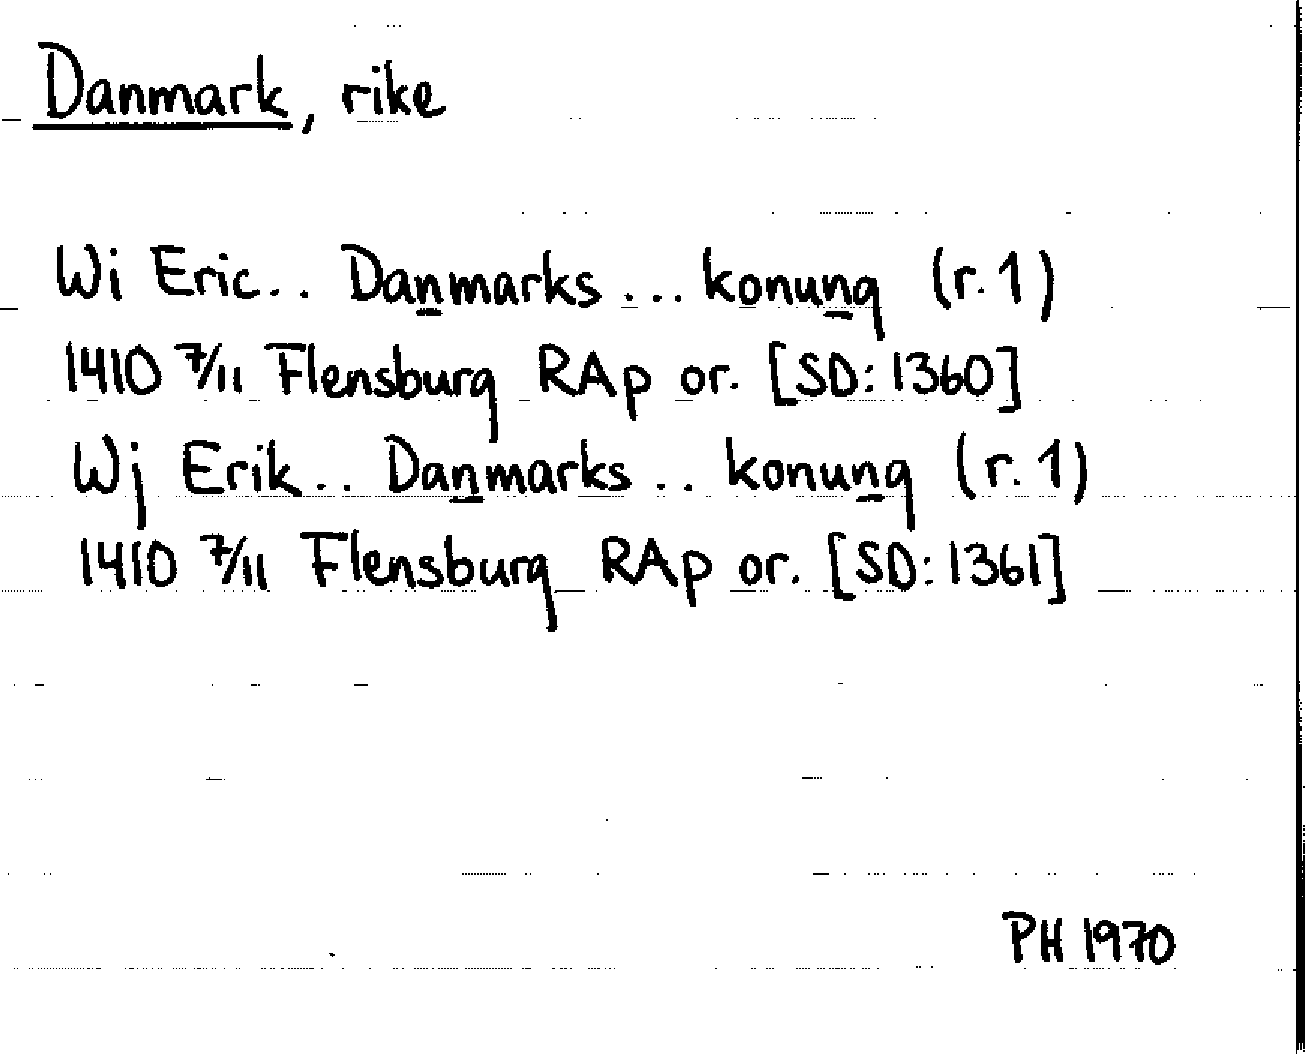 Danmark, rike
Wi Eric.. Danmarks ... konung (r. 1)
1410 7/11 Flensburg RAp or. [SD: 1360]
Wj Erik.. Danmarks .. konung (r. 1)
1410 7/11 Flensburg RAp or. [SD: 1361]
PH 1970